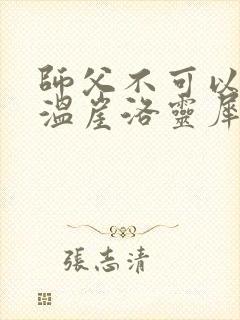 師父不可以
溫崖洛靈犀
張志清